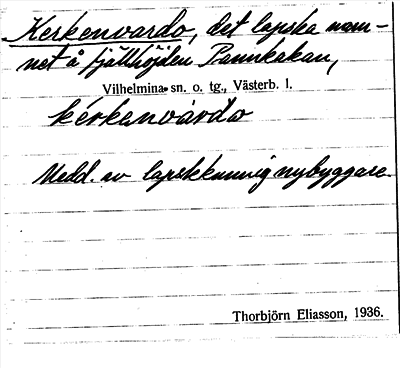 Kerkenvardo, det lapska nam-
net å fjällhöjden Pannkakan,
Vilhelmina sn. o. tg., Västerb. l.
kérkenvàrdo
Medd. av lapskkunnig nybyggare.
Thorbjörn Eliasson, 1936.